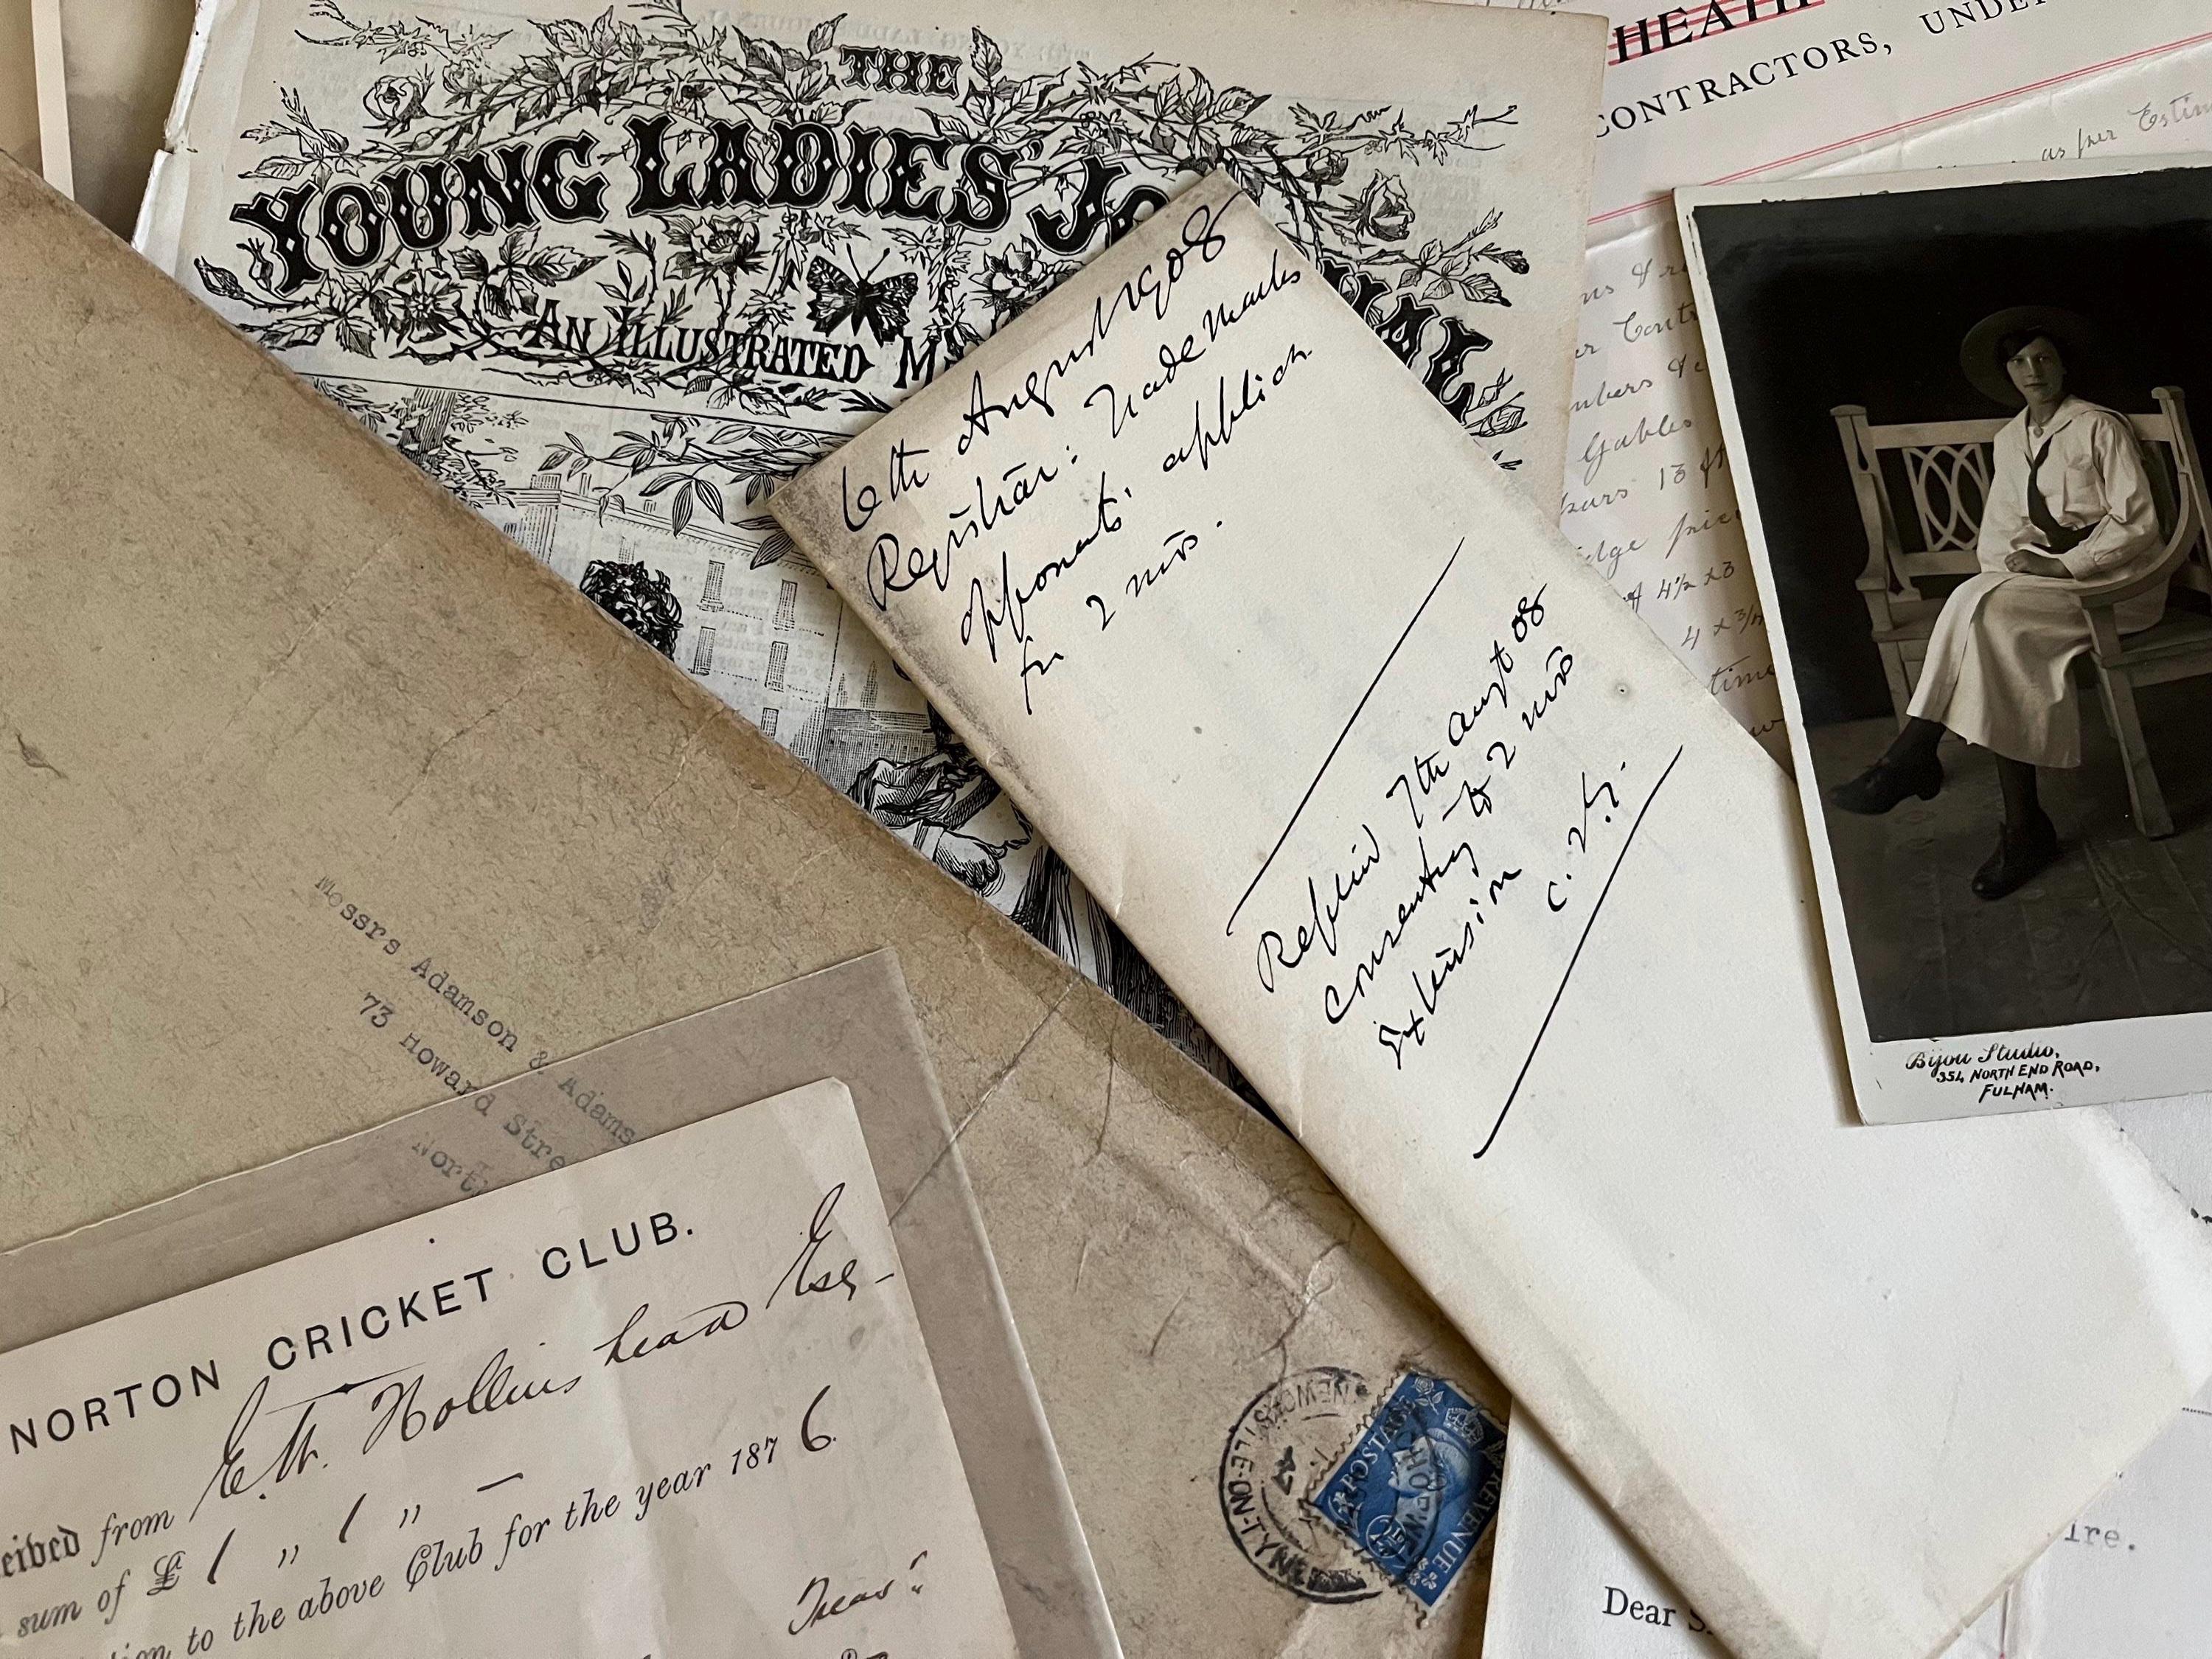 THE
YOUNG LADIES' JO
NAL
AN ILLUSTRATED M
HEATH
CONTRACTORS, UNDE
as per Estim
6th August 1908
Registrar: Trade Marks
opponents' applicn.
for 2 mos.
Replied 7th Augt 08
consenting to 2 mos
Extension
Gables
4½ x 3
time
Bijou Studio,
354, NORTH END ROAD,
FULHAM.
Messrs Adamson & Adams
73 Howard Stre
North
NORTON CRICKET CLUB.
eived from E.W. Hollinshead Esq
sum of £ 1 " 1 " –
tion to the above Club for the year 1876
Treasr
NEWCASTLE-ON-TYNE
47
POSTAGE
REVENUE
2½
ire.
Dear S